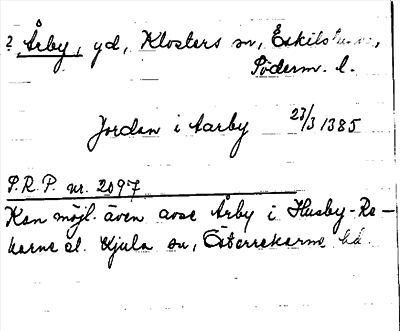 ? Årby, yd, Klosters sn, Eskilstuna,
Söderm. l.
Jordan i Aarby 23/3 1385
S.R.P. nr. 2097
Kan möjl. även avse Årby i Husby-Re-
karne el. Kjula sn, Österrekarne hd.